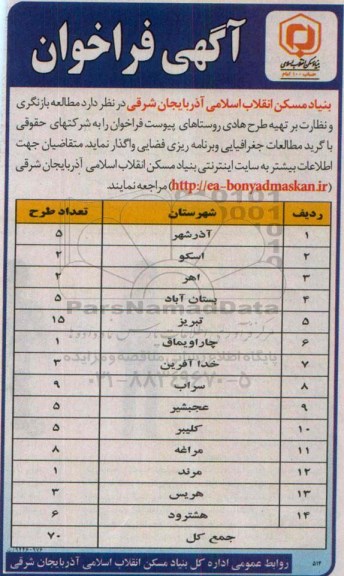 آگهی فراخوان
بنیاد مسکن انقلاب اسلامی
حساب ۱۰۰ امام
بنیاد مسکن انقلاب اسلامی آذربایجان شرقی در نظر دارد مطالعه بازنگری
و نظارت بر تهیه طرح هادی روستاهای پیوست فراخوان را به شرکتهای حقوقی
با گرید مطالعات جغرافیایی و برنامه ریزی فضایی واگذار نماید. متقاضیان جهت
اطلاعات بیشتر به سایت اینترنتی بنیاد مسکن انقلاب اسلامی آذربایجان شرقی
(http://ea-bonyadmaskan.ir) مراجعه نمایند.
ردیف شهرستان تعداد طرح
۱ آذرشهر ۵
۲ اسکو ۲
۳ اهر ۲
۴ بستان آباد ۵
۵ تبریز ۱۵
۶ چاراویماق ۱
۷ خدا آفرین ۳
۸ سراب ۹
۹ عجبشیر ۵
۱۰ کلیبر ۵
۱۱ مراغه ۸
۱۲ مرند ۱
۱۳ هریس ۳
۱۴ هشترود ۶
جمع کل ۷۰
ParsNamadData
پایگاه اطلاع رسانی مناقصه و مزایده
۰۲۱-۸۸۳۴۹۶۷۰-۵
روابط عمومی اداره کل بنیاد مسکن انقلاب اسلامی آذربایجان شرقی
۵۱۴